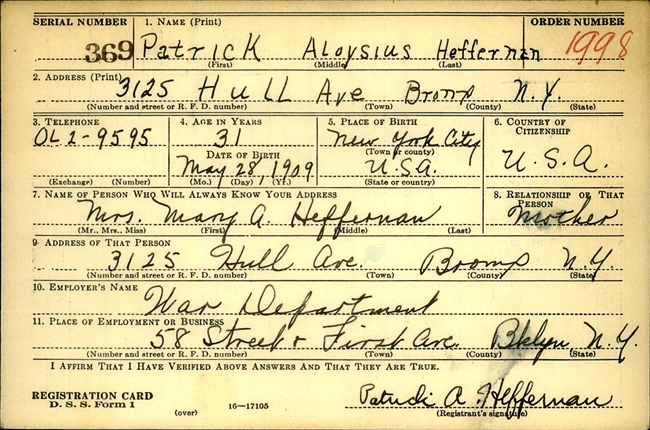 SERIAL NUMBER 1. NAME (Print) ORDER NUMBER
369 Patrick Aloysius Heffernan 1998
(First) (Middle) (Last)
2. ADDRESS (Print)
3125 Hull Ave Bronx N.Y.
(Number and street or R. F. D. number) (Town) (County) (State)
3. TELEPHONE 4. AGE IN YEARS 5. PLACE OF BIRTH 6. COUNTRY OF CITIZENSHIP
OL 2-9595 31 New York City U.S.A.
(Town or county)
DATE OF BIRTH
May 28, 1909 U.S.A.
(Exchange) (Number) (Mo.) (Day) (Yr.) (State or country)
7. NAME OF PERSON WHO WILL ALWAYS KNOW YOUR ADDRESS 8. RELATIONSHIP OF THAT PERSON
Mrs. Mary A. Heffernan Mother
(Mr., Mrs., Miss) (First) (Middle) (Last)
9. ADDRESS OF THAT PERSON
3125 Hull Ave. Bronx N.Y.
(Number and street or R. F. D. number) (Town) (County) (State)
10. EMPLOYER'S NAME
War Department
11. PLACE OF EMPLOYMENT OR BUSINESS
58 Street & First Ave. Bklyn N.Y.
(Number and street or R. F. D. number) (Town) (County) (State)
I AFFIRM THAT I HAVE VERIFIED ABOVE ANSWERS AND THAT THEY ARE TRUE.
REGISTRATION CARD
D. S. S. Form 1 (over) 16—17105
Patrick A. Heffernan
(Registrant's signature)